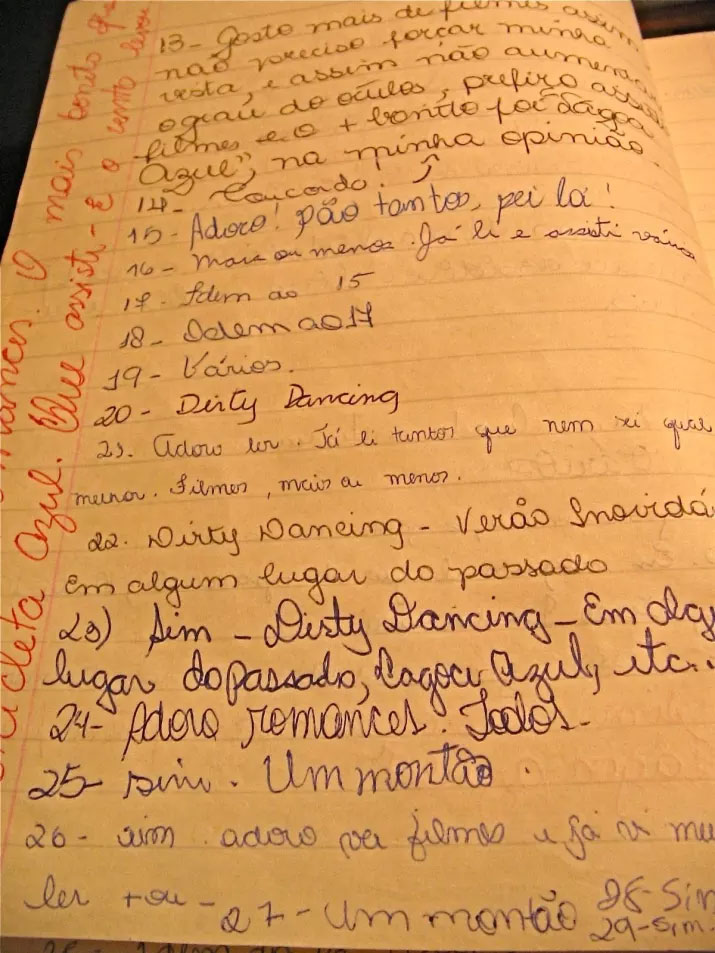 13- Gosto mais de filmes assim
não preciso forçar minha
vista, e assim não aumenta
o grau do óculos, prefiro
filmes e o + bonito foi "Lagoa
Azul", na minha opinião.
14- Concordo.
15- Adoro! São tantos, sei lá!
16- Mais ou menos. Já li e assisti vários
17- Idem ao 15
18- Idem ao 17
19- Vários.
20- Dirty Dancing
21. Adoro ler. Já li tantos que nem sei qual
Filmes, mais ou menos.
22. Dirty Dancing - Verão Inovidá
Em algum lugar do passado
23) Sim - Dirty Dancing - Em alg
lugar do passado, Lagoa Azul, etc..
24- Adoro romances. Todos.
25- Sim. Um montão.
26- sim adoro ver filmes e já vi mu
ler + ou -
27- Um montão
28- Sim
29- Sim
mances. O mais bonito que
Azul. Que assisti - E o livro